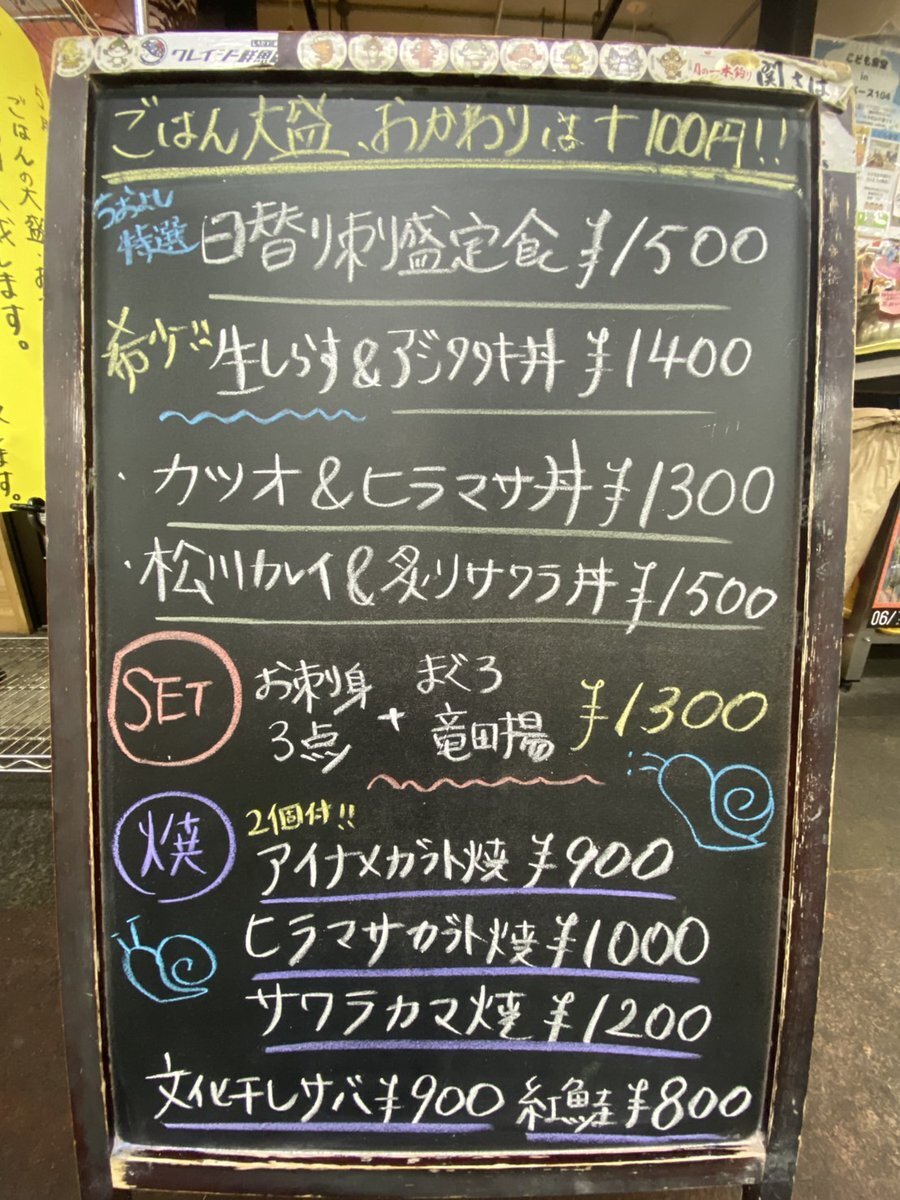 クレイジー鮮魚
月の一本釣り 関さば
こども食堂
in
バース104
ごはん大盛、おかわりは+100円!!
うおよし
特選 日替り刺盛定食 ¥1500
希少!! 生しらす&アジタタキ丼 ¥1400
・カツオ&ヒラマサ丼 ¥1300
・松川カレイ&炙りサワラ丼 ¥1500
SET お刺身3点 + まぐろ竜田揚 ¥1300
焼 2個付!!
アイナメガラト焼 ¥900
ヒラマサガラト焼 ¥1000
サワラカマ焼 ¥1200
文化干しサバ ¥900 紅鮭 ¥800
ごはんの大盛、お
します。
ます。
06/